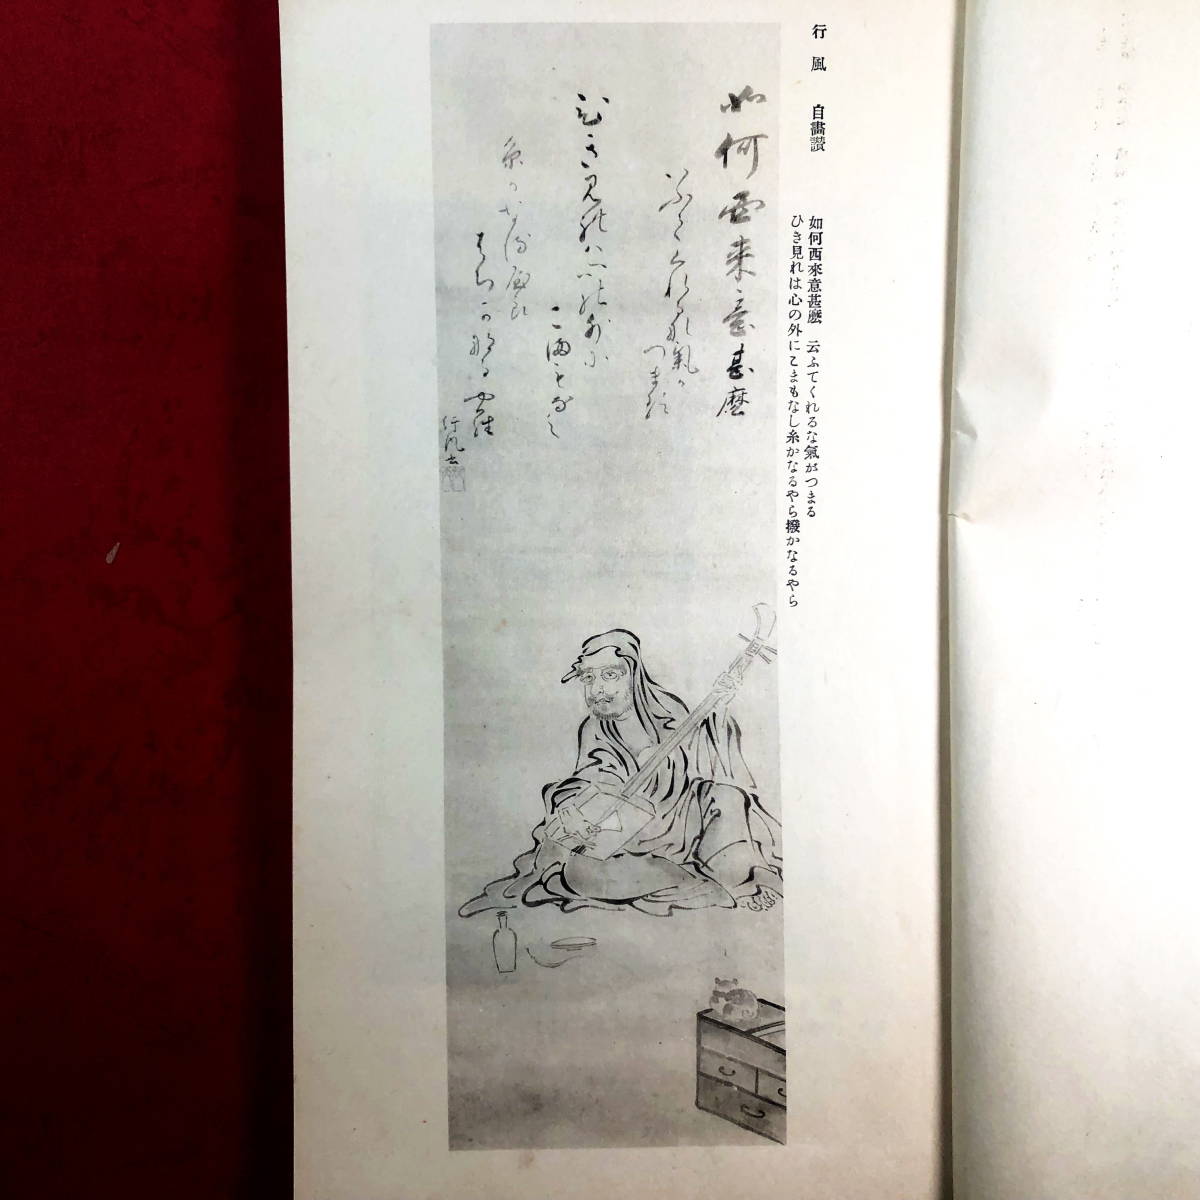 行風 自畵讃
如何西來意甚麼 云ふてくれるな氣がつまる
ひき見れは心の外にこまもなし糸かなるやら撥かなるやら
如何西来意甚麼
いふてくれるな氣か
つまる
ひき見れハ心の外に
こまもなし
糸かなるやら
はちかなるやら
行風